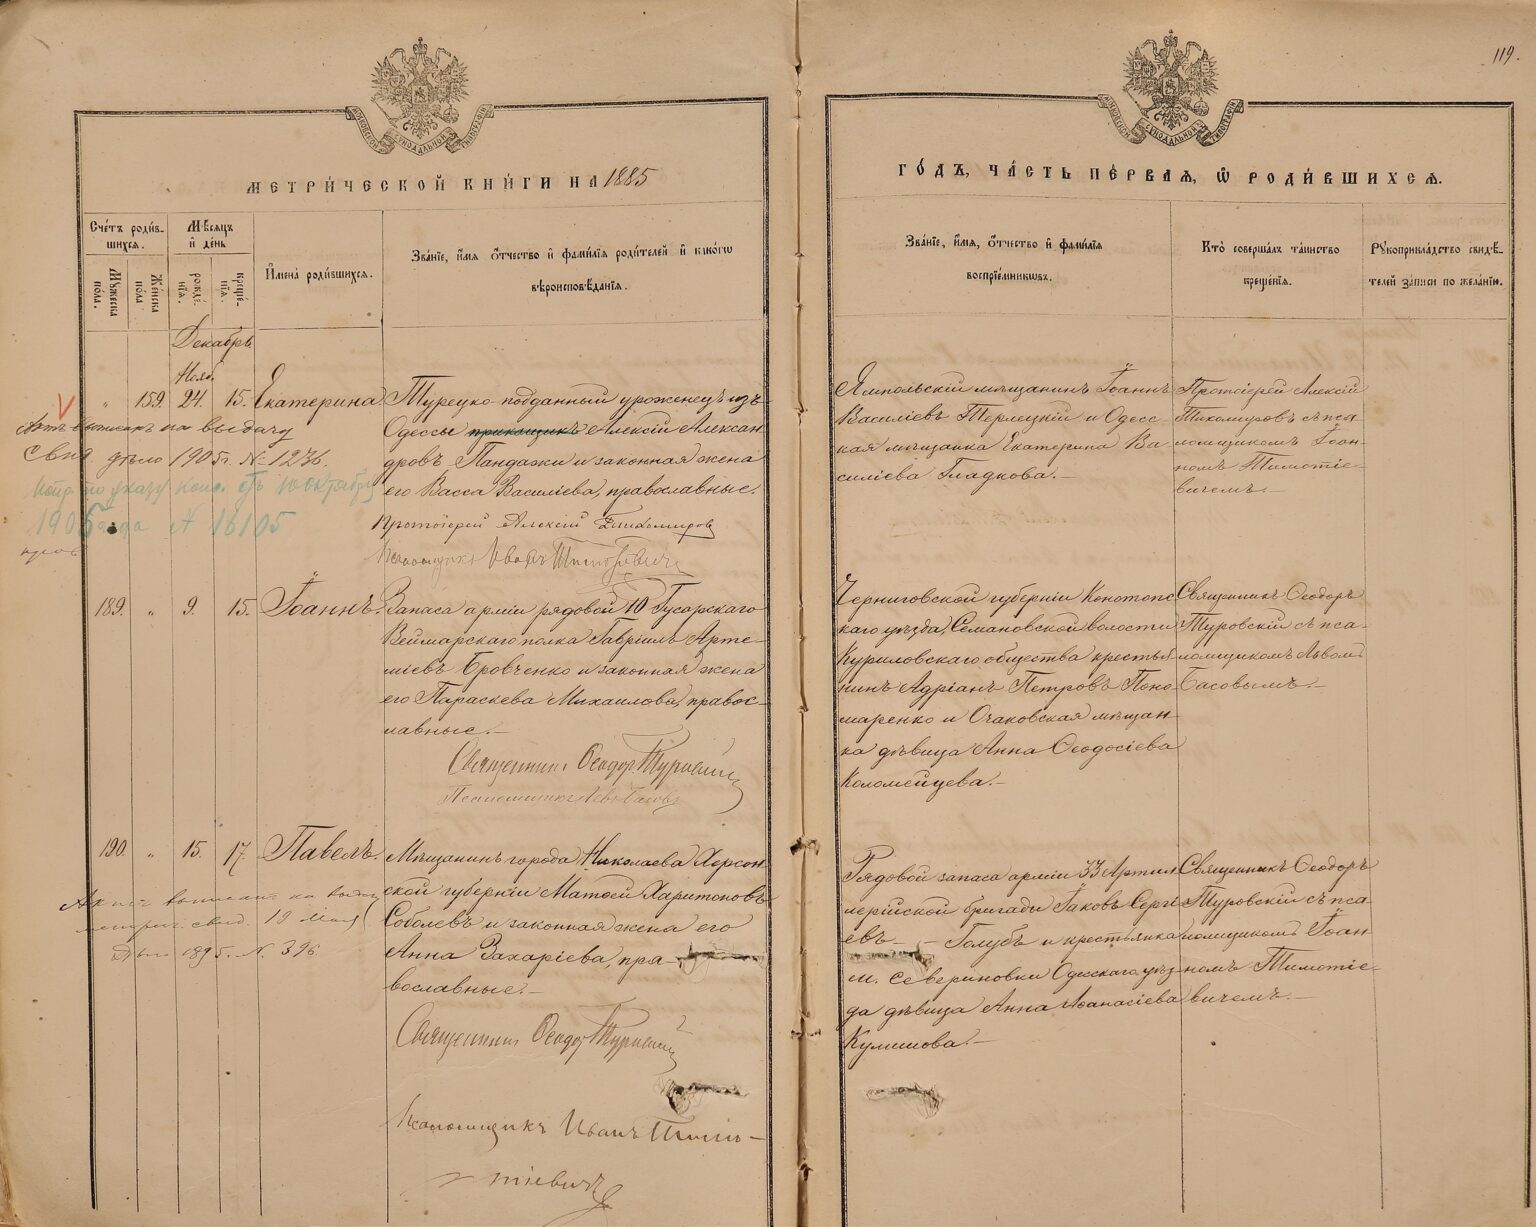 119.
МОСКОВСКОЙ СѴНОДАЛЬНОЙ ТИПОГРАФІИ
МОСКОВСКОЙ СѴНОДАЛЬНОЙ ТИПОГРАФІИ
МЕТРИ́ЧЕСКОЙ КНИ́ГИ НА 1885
ГО́ДЪ, ЧА́СТЬ ПЕ́РВАЯ, Ѡ РОДИ́ВШИХСЯ.
Сче́тъ роди́в-
шихся.
Мѣсяцъ
и де́нь
Мꙋ́жеска
по́ла.
Же́нска
по́ла
рожде́-
нїя.
креще́-
нїя.
Имена̀ роди́вшихся.
Зва́нїе, и́мя ѻ́тчество и фами́лїя роди́телей и како́гѡ
вѣроисповѣ́данїя.
Зва́нїе, и́мя, ѻ́тчество и фами́лїя
воспрїе́мникѡвъ.
Кто̀ соверша́лъ та́инство
креще́нїя.
Рꙋкоприкла́дство свидѣ́-
телей за́писи по жела́нїю.
Декабрь
Нояб.
" 159. 24. 15. Екатерина
Турецко-подданный уроженецъ изъ
Одессы прикащикъ Алексій Алексан
дровъ Пандазки и законная жена
его Васса Васильева, православные.
Протоіерей Алексій Тихомировъ
Псаломщикъ Иванъ Тимофіевичъ
Ямпольскій мѣщанинъ Іоаннъ
Василіевъ Терлецкій и Одесс-
кая мѣщанка Екатерина Ва
силіева Гладкова.—
Протоіерей Алексій
Тихомировъ съ пса
ломщикомъ Іоан-
номъ Тимотіе-
вичемъ.—
на выдачу
свид дѣло 1905г. № 1236.
по указу конс. отъ 10 октября
1905 года № 16105
189. " 9. 15. Іоаннъ.
Запаса арміи рядовой 10 Гусарскаго
Веймарскаго полка Гавріилъ Арте-
міевъ Бровченко и законная жена
его Параскева Михаилова, правос-
лавные.—
Священникъ Ѳеодоръ Туровскій
Псаломщикъ Левъ Басовъ
Черниговской губерніи Конотопс
каго уѣзда, Семановской волости
Куриловскаго общества крестья
нинъ Адріанъ Петровъ Поно
маренко и Очаковская мѣщан-
ка дѣвица Анна Ѳеодосіева
Коломейцева.—
Священникъ Ѳеодоръ
Туровскій съ пса-
ломщикомъ Львомъ
Басовымъ.—
190. " 15. 17. Павелъ.
Мѣщанинъ города Николаева Херсон-
ской губерніи Матѳей Харитоновъ
Соболевъ и законная жена его
Анна Захаріева, пра-
вославные.—
Священникъ Ѳеодоръ Туровскій
Псаломщикъ Иванъ Тимо-
тіевичъ
Рядовой запаса арміи 33 Артил
лерійской бригады Іаковъ Сергі
евъ — Голубъ и крестьянка
м. Севериновки Одесскаго уѣз-
да дѣвица Анна Аѳанасіева
Кулишова.—
Священникъ Ѳеодоръ
Туровскій съ пса-
ломщикомъ Іоан
номъ Тимотіе-
вичемъ.—
метрич. свид. 19 Мая
дѣло 1895г. № 396